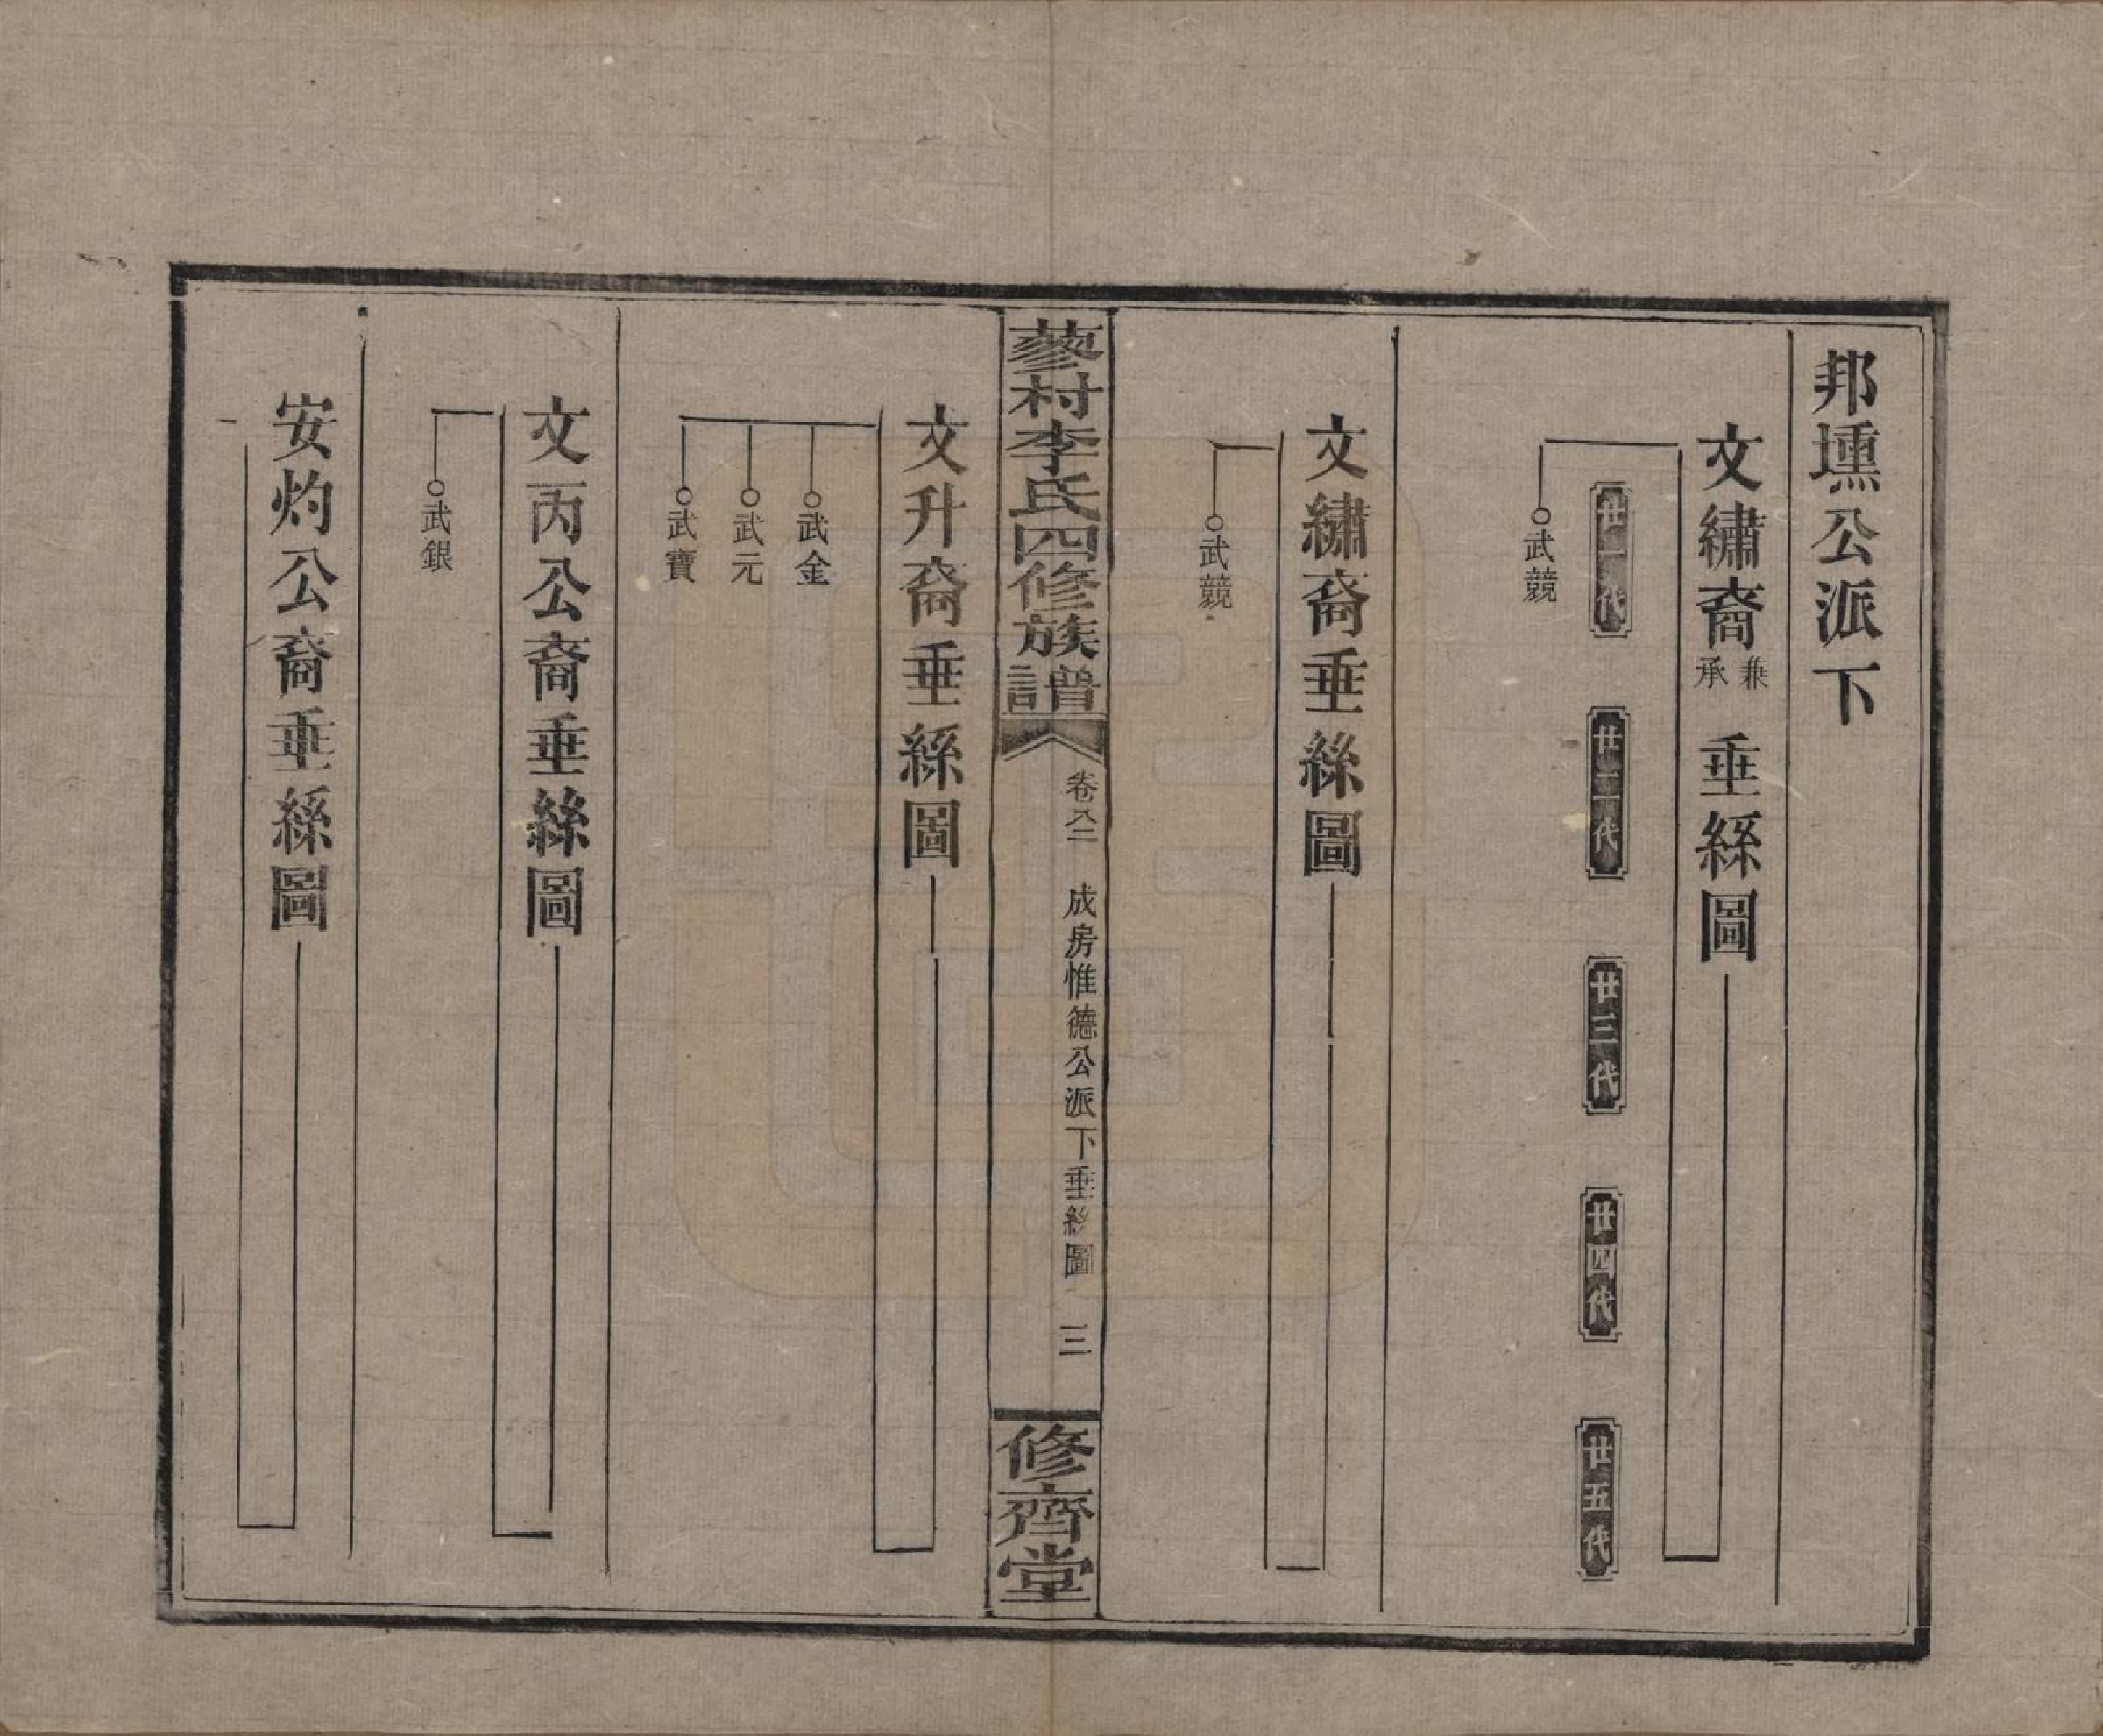 邦壎公派下
文繡裔兼承垂絲圖
廿一代
廿二代
廿三代
廿四代
廿五代
武競
文繡裔垂絲圖
武競
蓼村李氏四修族譜
卷八二 成房惟德公派下垂絲圖 三
修齊堂
文升裔垂絲圖
武金
武元
武寶
文丙公裔垂絲圖
武銀
安灼公裔垂絲圖